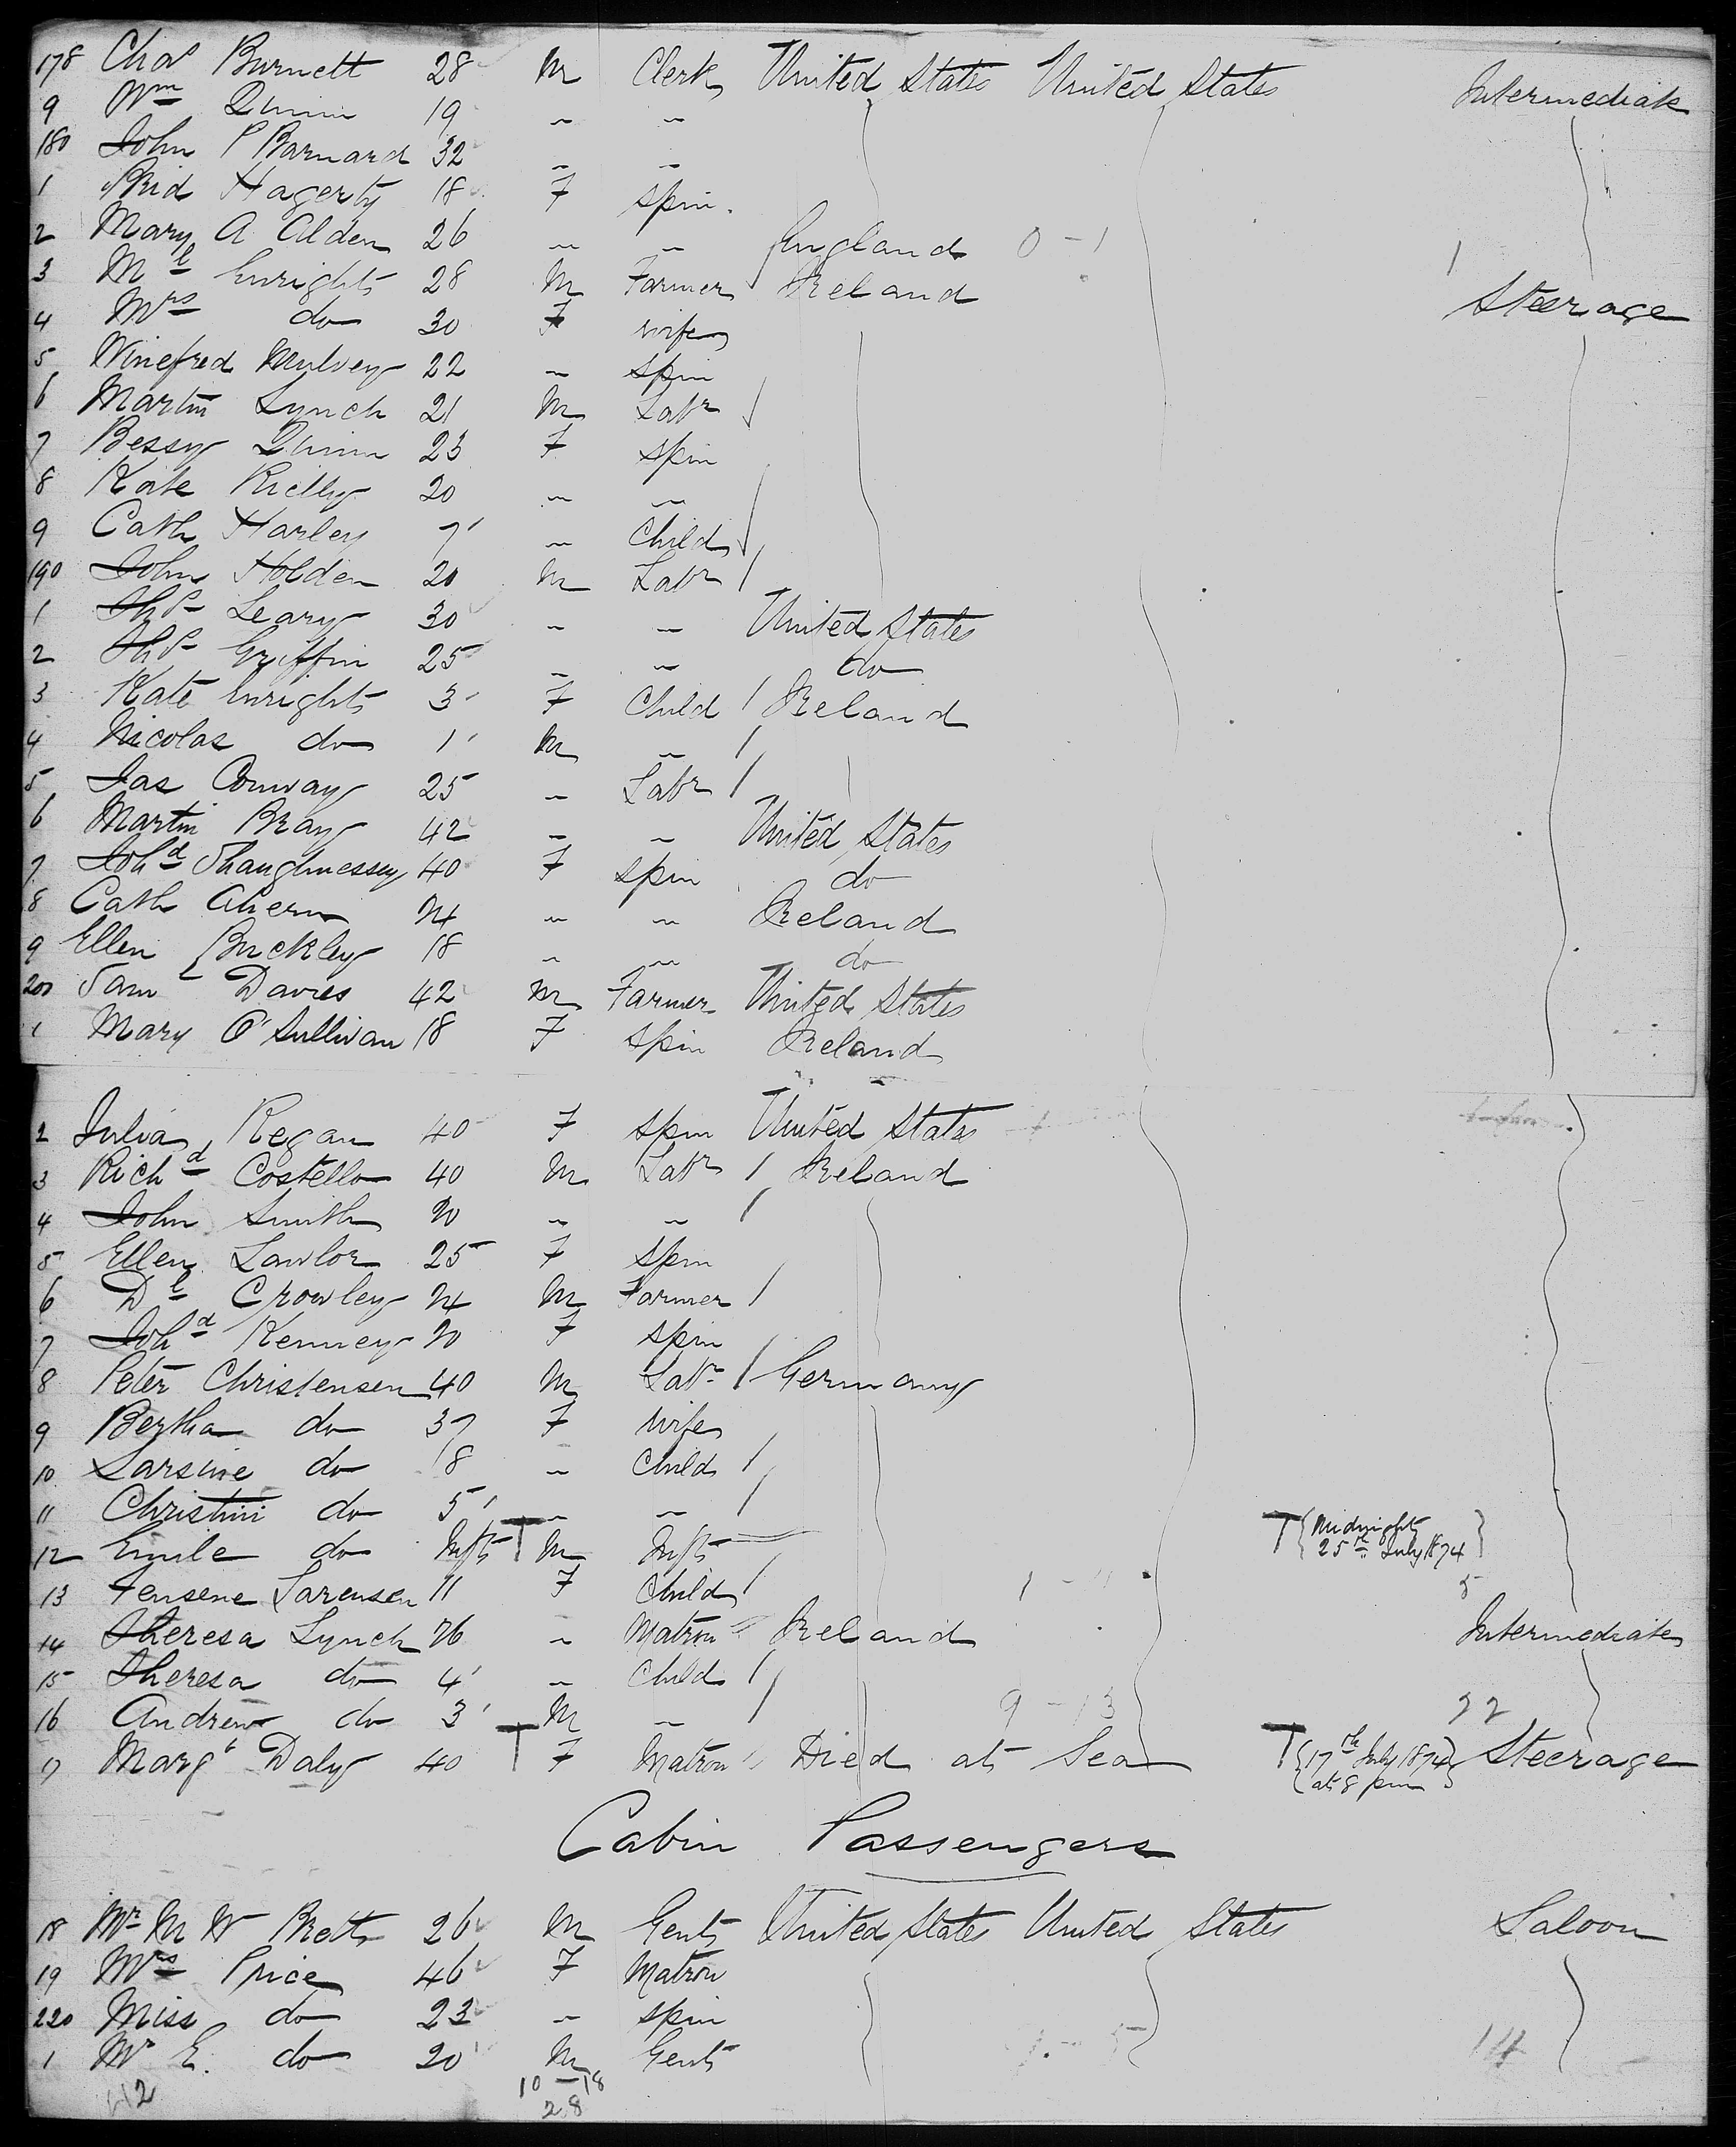 178 Chas Burnett 28 M Clerk United States United States Intermediate
9 Wm Quinn 19 " "
180 John P Barnard 32 " "
1 Brid Hagerty 18 F spin.
2 Mary A Alden 26 " " England 0-1 1
3 Ml Enright 28 M Farmer Ireland Steerage
4 Mrs do 30 F wife
5 Winefred Mulvey 22 " spin
6 Martin Lynch 21 M Labr
7 Bessy Quinn 23 F spin
8 Kate Rielly 20 " "
9 Cath Harley 7 " Child
190 John Holden 20 M Labr
1 Ths Leary 30 " " United States
2 Ths Griffin 25 " " do
3 Kate Enright 3 F Child Ireland
4 Nicolas do 1 M "
5 Jas Conway 25 " Labr
6 Martin Bray 42 " " United States
7 Johd Shaughnessy 40 F spin do
8 Cath Ahern 24 " " Ireland
9 Ellen Buckley 18 " " do
200 Saml Davies 42 M Farmer United States
1 Mary O'Sullivan 18 F spin Ireland
2 Julia Regan 40 F spin United States
3 Richd Costello 40 M Labr Ireland
4 John Smith 20 " "
5 Ellen Lawlor 25 F spin
6 Dl Crowley 24 M Farmer
7 Johd Kenney 20 F spin
8 Peter Christensen 40 M Labr Germany
9 Bertha do 37 F wife
10 Larsine do 8 " Child
11 Christini do 5 " "
12 Emile do Inft T M Inft T { Midnight 25th July 1874 }
13 Jensene Sorensen 11 F Child 5
14 Theresa Lynch 26 " Matron Ireland Intermediate
15 Theresa do 4 " Child
16 Andrew do 3 M " 9-13 22
17 Margt Daly 40 T F Matron Died at Sea T { 17th July 1874 at 8 pm } Steerage
Cabin Passengers
18 Mr M W Brett 26 M Gent United States United States Saloon
19 Mrs Price 46 F Matron
220 Miss do 23 " spin
1 Mr E. do 20 M Gent 14
10-18
28